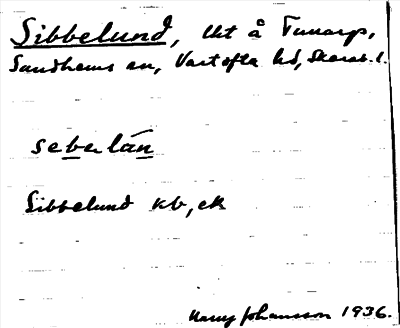 Sibbelund, lht å Tunarp,
Sandhems sn, Vartofta hd, Skarab. l.
seberlán
Sibbelund kb, ek
Harry Johansson 1936.